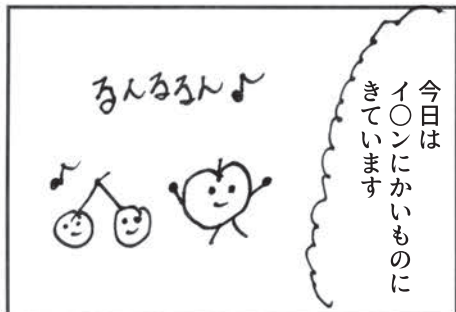 今日は
イ〇ンにかいものに
きています
るんるるん♪